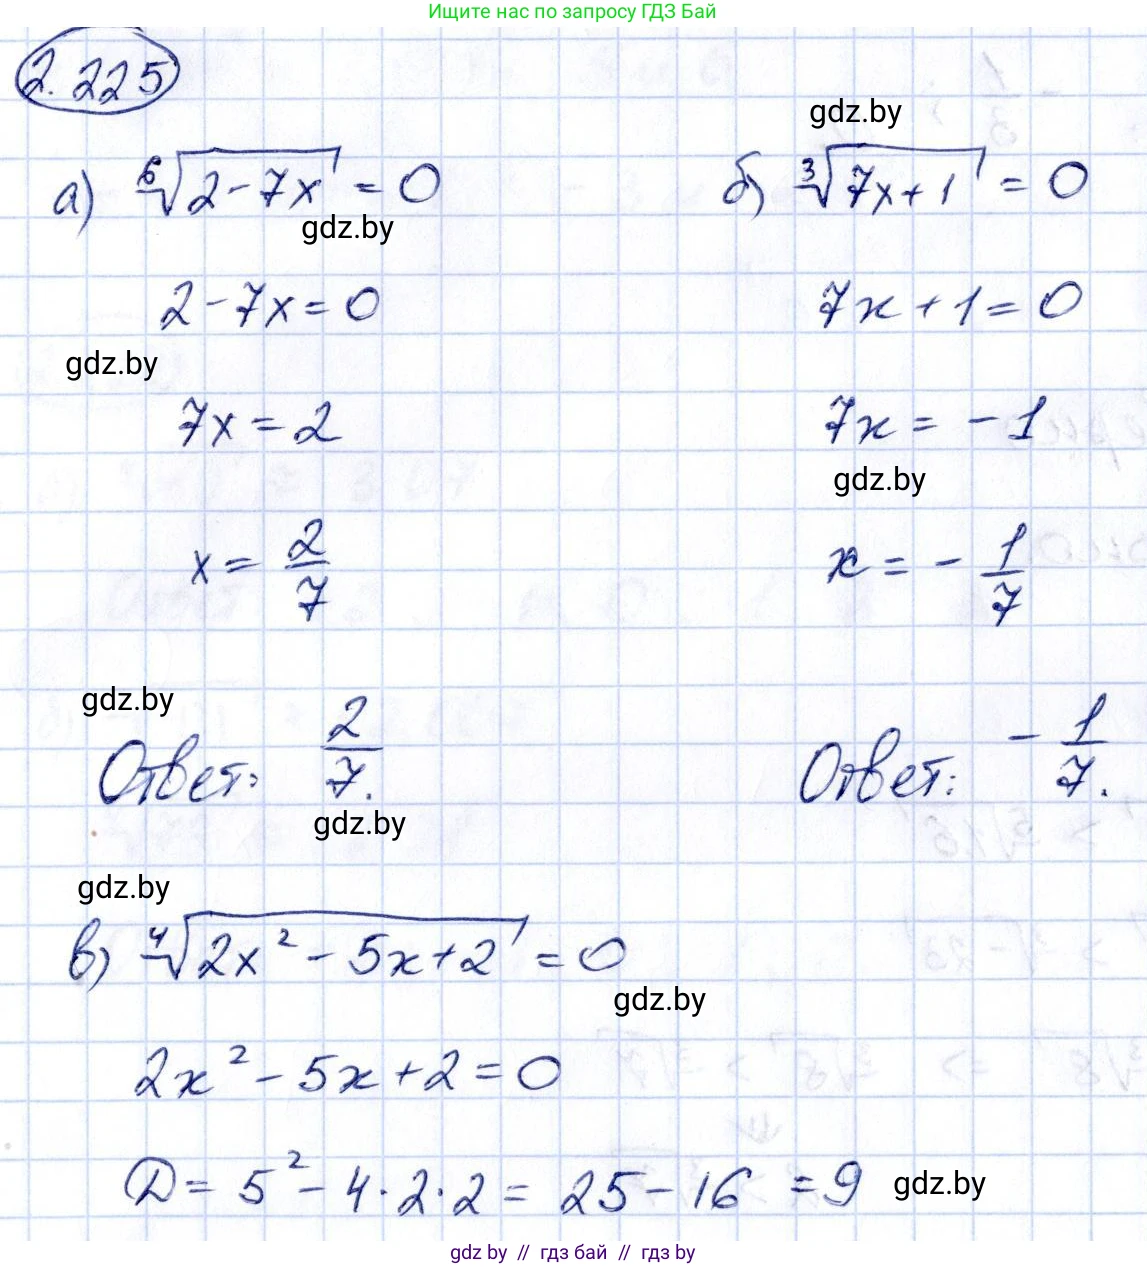 Ищите нас по запросу ГДЗ Бай
2.225
gdz.by
а) ⁶√(2-7x) = 0
б) ³√(7x+1) = 0
gdz.by
2-7x=0
7x+1=0
gdz.by
7x=2
7x = -1
gdz.by
x = 2/7
x = -1/7
gdz.by
Ответ: 2/7.
Ответ: -1/7.
gdz.by
gdz.by
в) ⁴√(2x² - 5x+2) = 0
gdz.by
2x² - 5x+2=0
D = 5² - 4·2·2 = 25-16 = 9
gdz.by
gdz by // гдз бай // гдз by